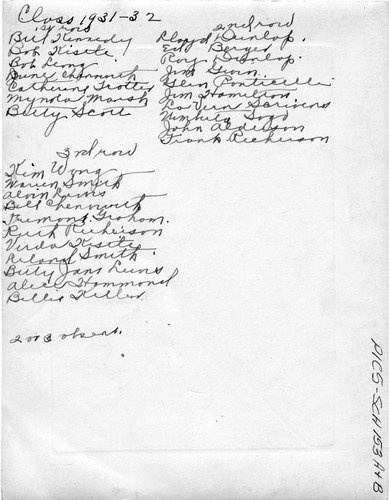 Class 1931-32
1st row
Bill Kennedy
Bob Kistle
Bob Leong
June Chenowth
Catherine Trotter
Mynola Marsh
Betty Scott
2nd row
Lloyd Dunlop.
Ed Berger
Roy Dunlop.
Jim Gwin.
Glen Ponticelli
Jim Hamilton
La Vern Scrivens
John Alderson
Frank Richerson
3rd row
Kim Wong
Warren Smith
Alvin
Bill Chenowth
Graham.
Ruth Richerson
Virda Kistle
Leland Smith
Billy Jans
Alice Hammond
Billie Keller
2 or 3 absent.
PICS-SCH 153 A+B